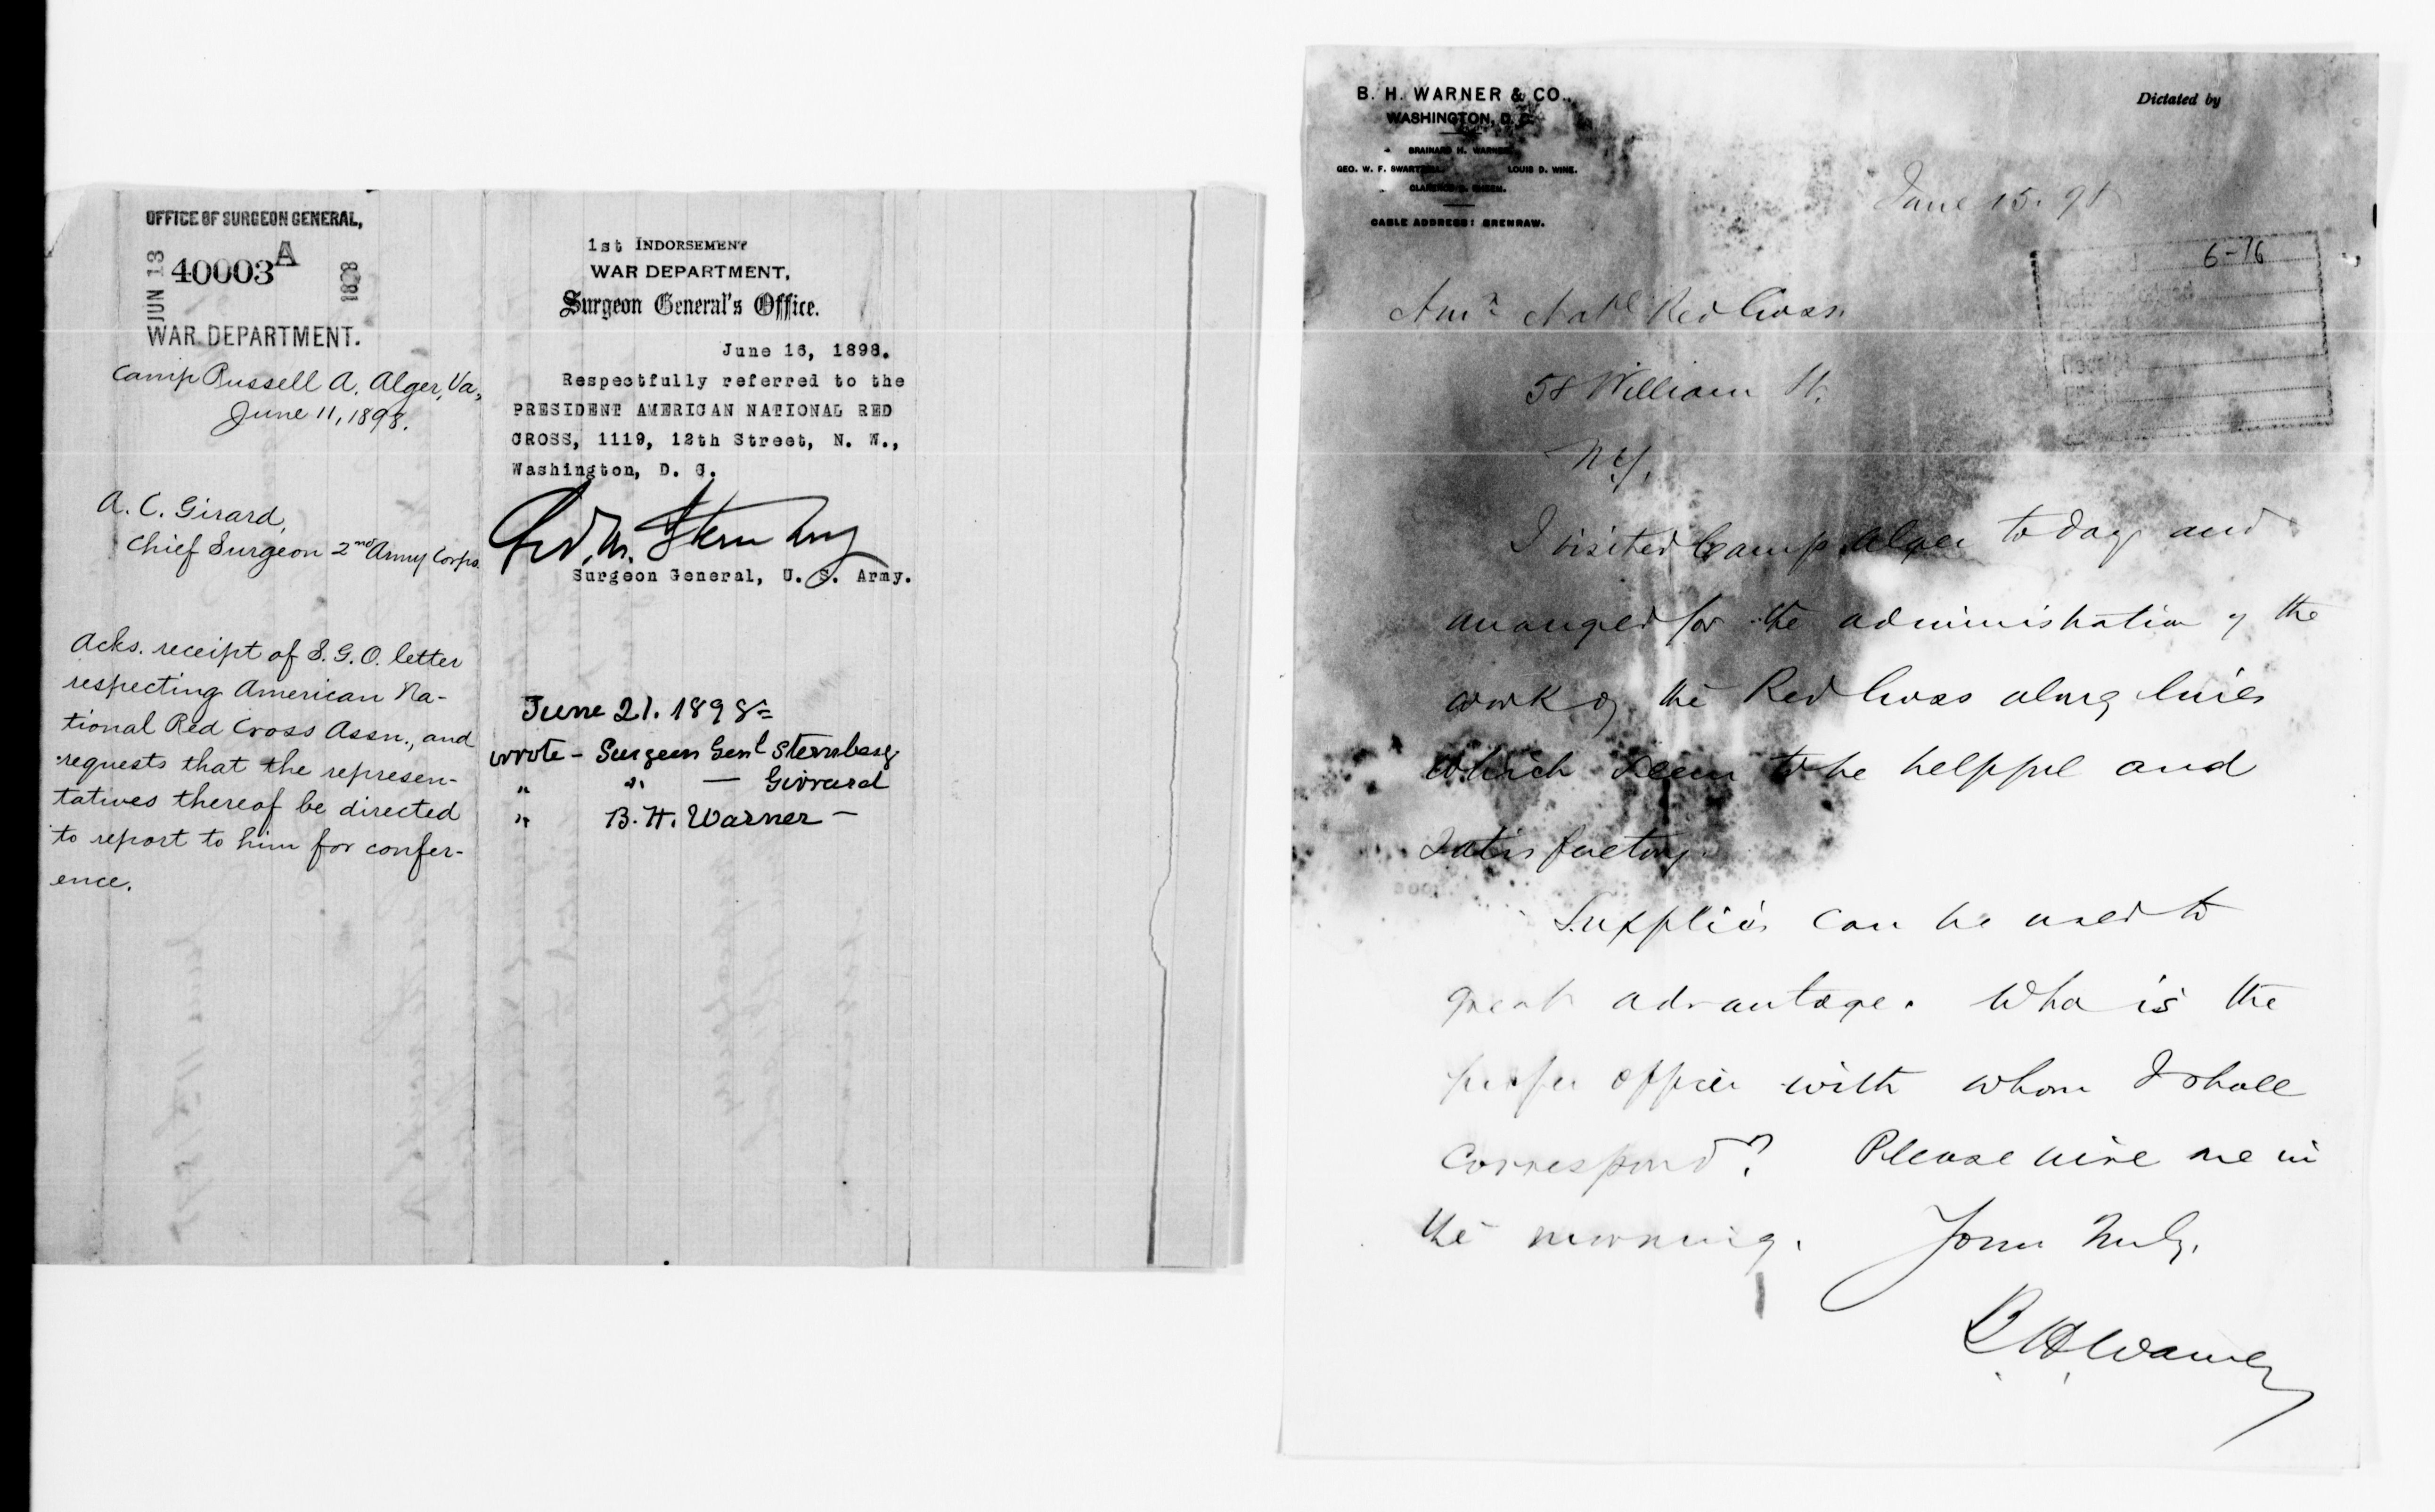 OFFICE OF SURGEON GENERAL,
JUN 13 40003 A 1898
WAR DEPARTMENT.
Camp Russell A. Alger, Va.,
June 11, 1898.
A. C. Girard,
Chief Surgeon 2nd Army Corps.
Acks. receipt of S. G. O. letter
respecting American Na-
tional Red Cross Assn., and
requests that the represen-
tatives thereof be directed
to report to him for confer-
ence.
1st INDORSEMENT
WAR DEPARTMENT,
Surgeon General's Office.
June 16, 1898.
Respectfully referred to the
PRESIDENT AMERICAN NATIONAL RED
CROSS, 1119, 12th Street, N. W.,
Washington, D. C.
Geo. M. Sternberg
Surgeon General, U. S. Army.
June 21. 1898=
wrote - Surgeon Genl Sternberg
" " — Girrard
" B. H. Warner —
B. H. WARNER & CO.,
WASHINGTON, D. C.
BRAINARD H. WARNER
GEO. W. F. SWARTZELL. LOUIS D. WINE.
CLARENCE B. RHEEM.
CABLE ADDRESS: BRENRAW.
Dictated by
June 15. 98
6-16
Receipt
Amn Natl Red Cross.
58 William St.
N.Y.
I visited Camp Alger today and
arranged for the administration of the
work of the Red Cross along lines
which seem to be helpful and
Satisfactory.
Supplies can be used to
great advantage. Who is the
proper officer with whom I shall
correspond? Please wire me in
the morning. Yours truly,
B. H. Warner